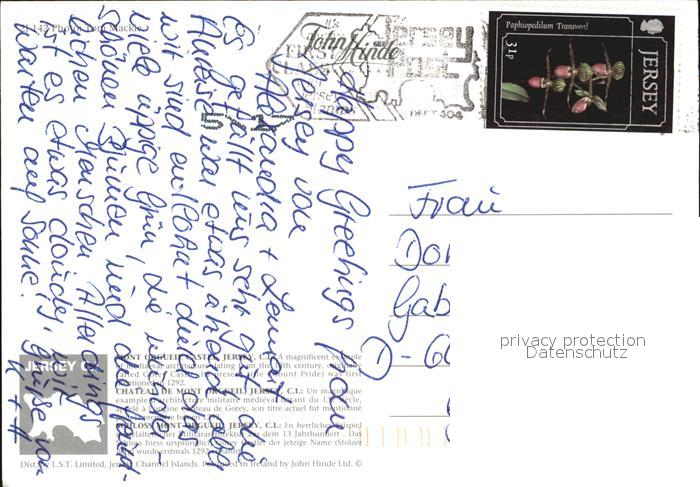 Happy Greetings from
Jersey von
Alexandra + Lennart
Es gefällt uns sehr gut, die
Anreise war etwas ätzend aber
wir sind entlohnt durch das
viele üppige Grün, die
schönen Blumen und die
lichen Menschen. Allerdings
ist es etwas cloudy, wir
warten auf Sonne! Grüße von
Frau
Dor
Gab
D-6
Paphiopedilum Transvaal
31p
JERSEY
IT'S
John Hinde
FIRST
Jersey
JERSEY C.I.
MONT ORGUEIL CASTLE, JERSEY, C.I.: A magnificent example
of mediaeval architecture dating from the 13th century,
Pride) was first
mentioned in 1292.
CHATEAU DE MONT ORGUEIL, JERSEY C.I.: Un magnifique
exemple d'architecture militaire médiévale datant du 13e siècle,
appelé à l'origine château de Gorey, son titre actuel fut mentionné
SCHLOSS MONT ORGUEIL, JERSEY, C.I.: Ein herrliches Beispiel
mittelalterlicher Militärarchitektur aus dem 13 Jahrhundert. Das
Schloss hiess ursprünglich Gorey Castle, der jetzige Name (Stolzer
wurde erstmals 1292
Dist. by L.S.T. Limited, Jersey, Channel Islands. Produced in Ireland by John Hinde Ltd. ©
privacy protection
Datenschutz